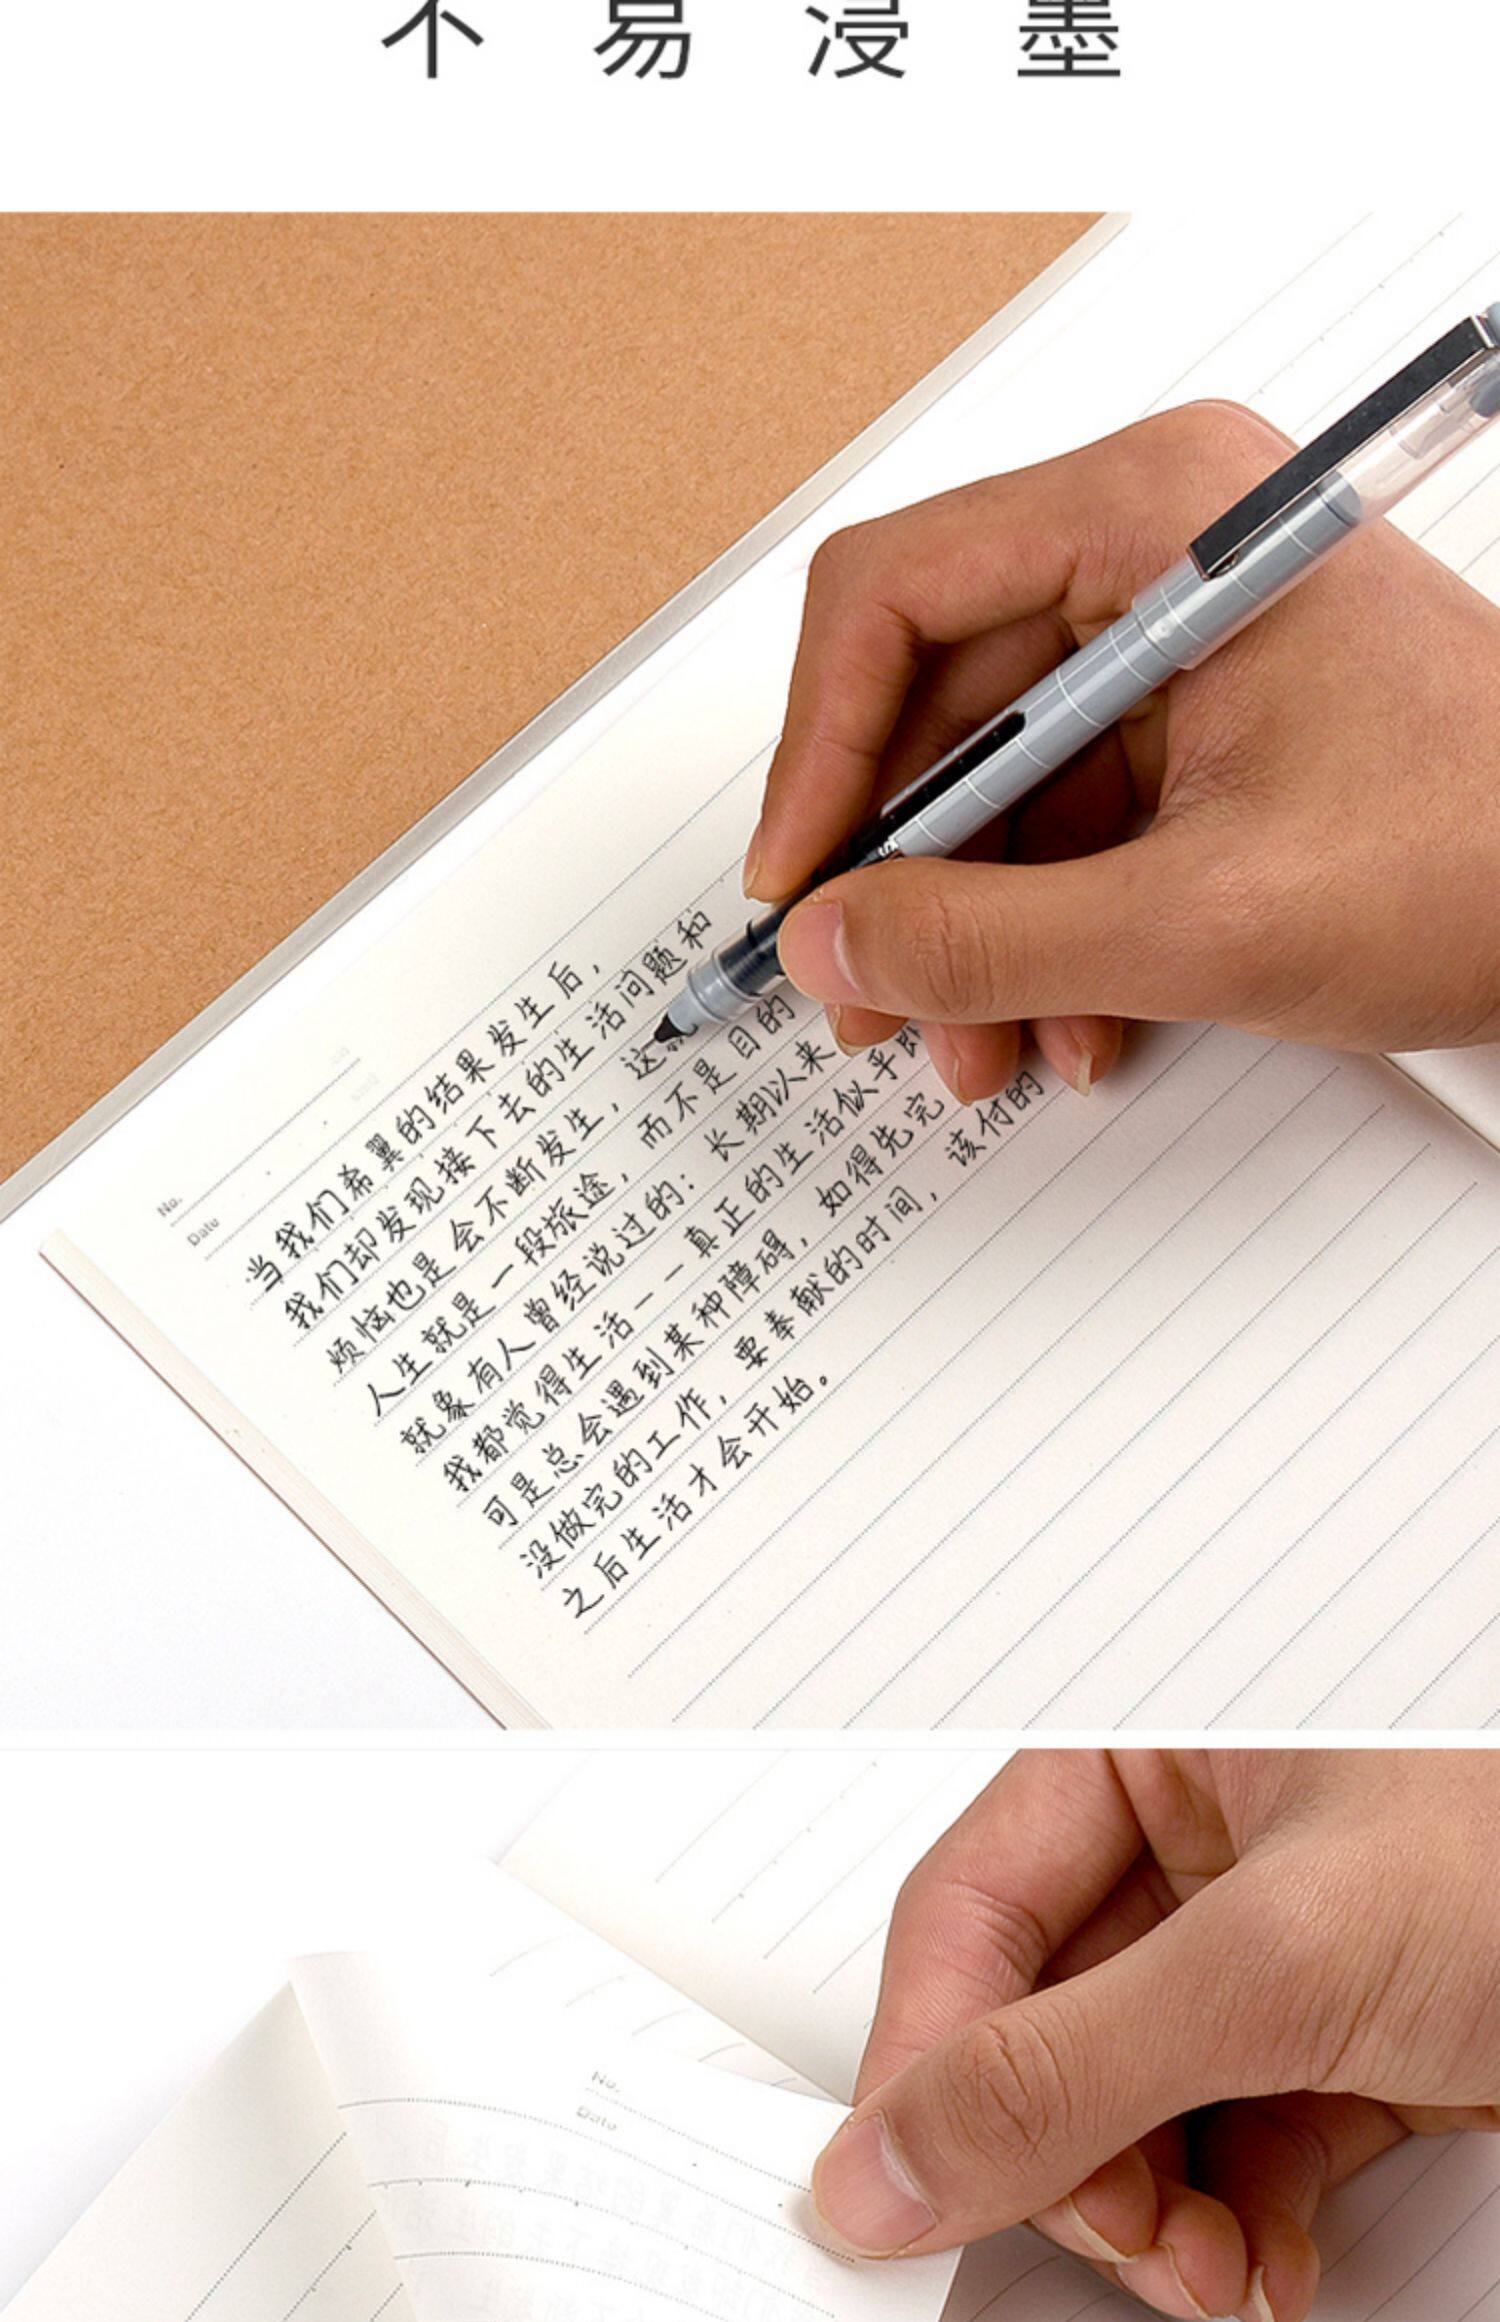 不易浸墨
No.
Date
当我们希翼的结果发生后，
我们却发现接下去的生活问题和
烦恼也是会不断发生，这就
人生就是一段旅途，而不是目的
就象有人曾经说过的：长期以来
我都觉得生活——真正的生活似乎即
可是总会遇到某种障碍，如得先完
没做完的工作，要奉献的时间，该付的
之后生活才会开始。
No.
Date